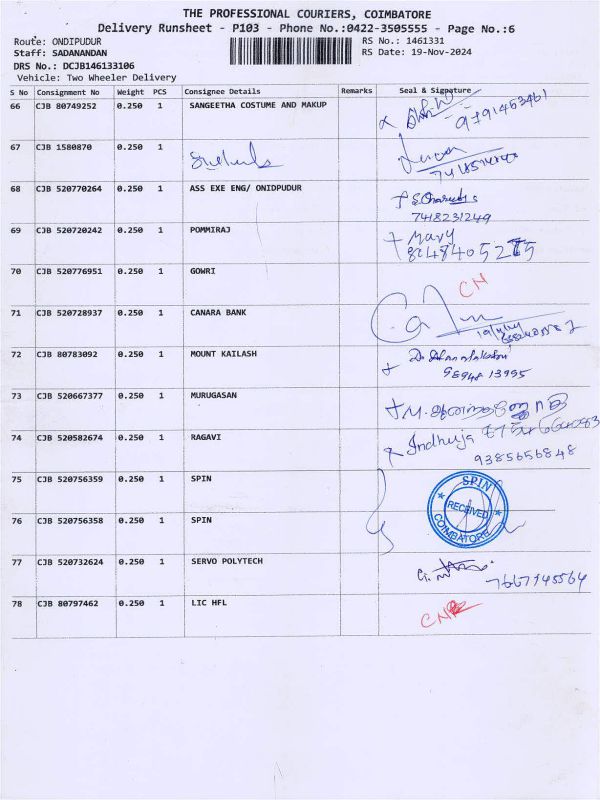 THE PROFESSIONAL COURIERS, COIMBATORE
Delivery Runsheet - P103 - Phone No.:0422-3505555 - Page No.:6
Route: ONDIPUDUR
RS No.: 1461331
Staff: SADANANDAN
RS Date: 19-Nov-2024
DRS No.: DCJB146133106
Vehicle: Two Wheeler Delivery
S No Consignment No Weight PCS Consignee Details Remarks Seal & Signature
66 CJB 80749252 0.250 1 SANGEETHA COSTUME AND MAKUP 9791453461
67 CJB 1580870 0.250 1
68 CJB 520770264 0.250 1 ASS EXE ENG/ ONIDPUDUR
7418231249
69 CJB 520720242 0.250 1 POMMIRAJ Mary
70 CJB 520776951 0.250 1 GOWRI CN
71 CJB 520728937 0.250 1 CANARA BANK
72 CJB 80783092 0.250 1 MOUNT KAILASH
98948 13995
73 CJB 520667377 0.250 1 MURUGASAN
74 CJB 520582674 0.250 1 RAGAVI Indhuja
9385656848
75 CJB 520756359 0.250 1 SPIN
SPIN
RECEIVED
COIMBATORE
76 CJB 520756358 0.250 1 SPIN
77 CJB 520732624 0.250 1 SERVO POLYTECH
78 CJB 80797462 0.250 1 LIC HFL